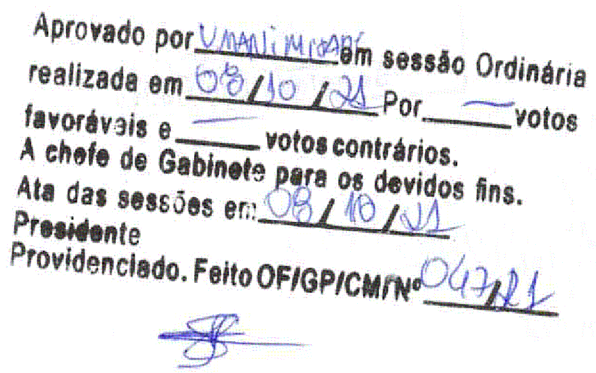 Aprovado por UNANIMIDADE em sessão Ordinária
realizada em 08/10/21 Por — votos
favoráveis e — votos contrários.
A chefe de Gabinete para os devidos fins.
Ata das sessões em 08/10/21
Presidente
Providenciado. Feito OF/GP/CM/Nº 047/21